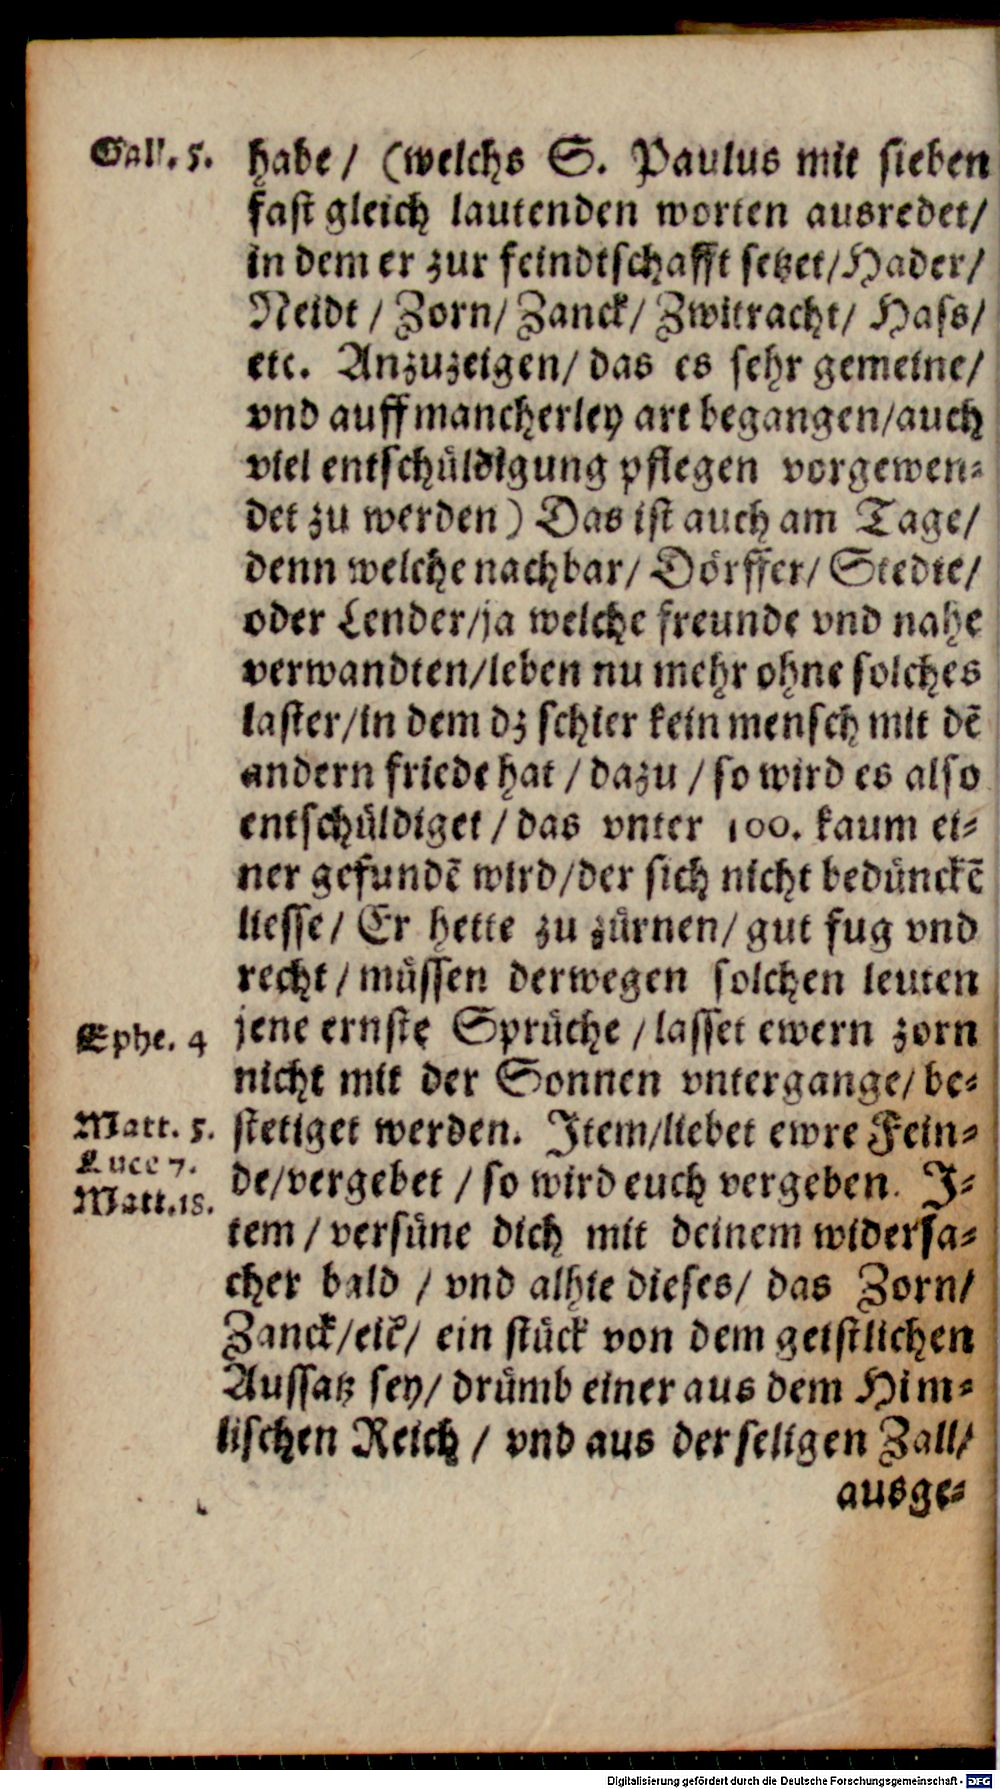 Gall. 5.
habe / (welchs S. Paulus mit sieben
fast gleich lautenden worten ausredet /
in dem er zur feindtschafft setzet / Hader /
Neidt / Zorn / Zanck / Zwitracht / Hass /
etc. Anzuzeigen / das es sehr gemeine /
vnd auff mancherley art begangen / auch
viel entschůldigung pflegen vorgewen-
det zu werden) Das ist auch am Tage /
denn welche nachbar / Dörffer / Stedte /
oder Lender / ja welche freunde vnd nahe
verwandten / leben nu mehr ohne solches
laster / in dem dz schier kein mensch mit dē
andern friede hat / dazu / so wird es also
entschůldiget / das vnter 100. kaum ei-
ner gefundē wird / der sich nicht bedůnckē
liesse / Er hette zu zůrnen / gut fug vnd
recht / můssen derwegen solchen leuten
Ephe. 4
jene ernste Sprůche / lasset ewern zorn
nicht mit der Sonnen vntergange / be-
Matt. 5.
stetiget werden. Item / liebet ewre Fein-
Luce 7.
de / vergebet / so wird euch vergeben. I-
Matt. 18.
tem / versůne dich mit deinem widersa-
cher bald / vnd alhie dieses / das Zorn /
Zanck / etc̄ / ein stůck von dem geistlichen
Aussatz sey / drůmb einer aus dem Him-
lischen Reich / vnd aus der seligen Zall /
ausge-
Digitalisierung gefördert durch die Deutsche Forschungsgemeinschaft - DFG